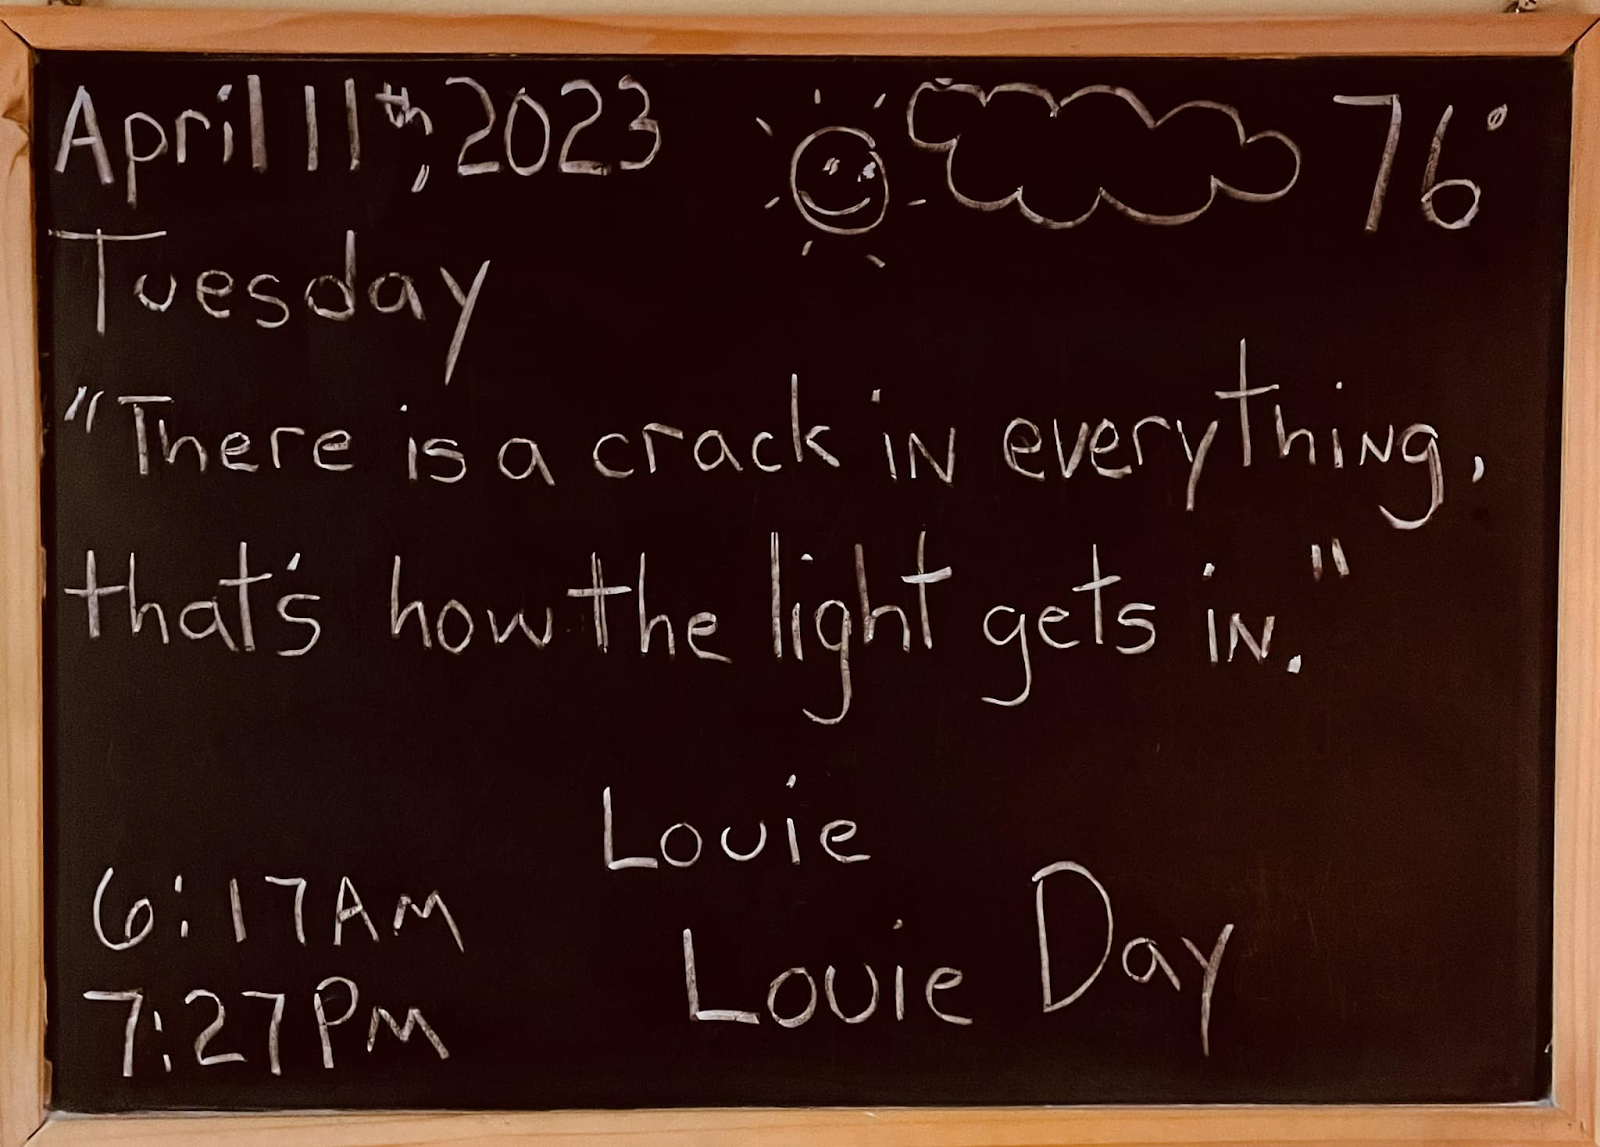 April 11th, 2023 76°
Tuesday
"There is a crack in everything,
that's how the light gets in."
Louie
6:17AM
Louie Day
7:27PM